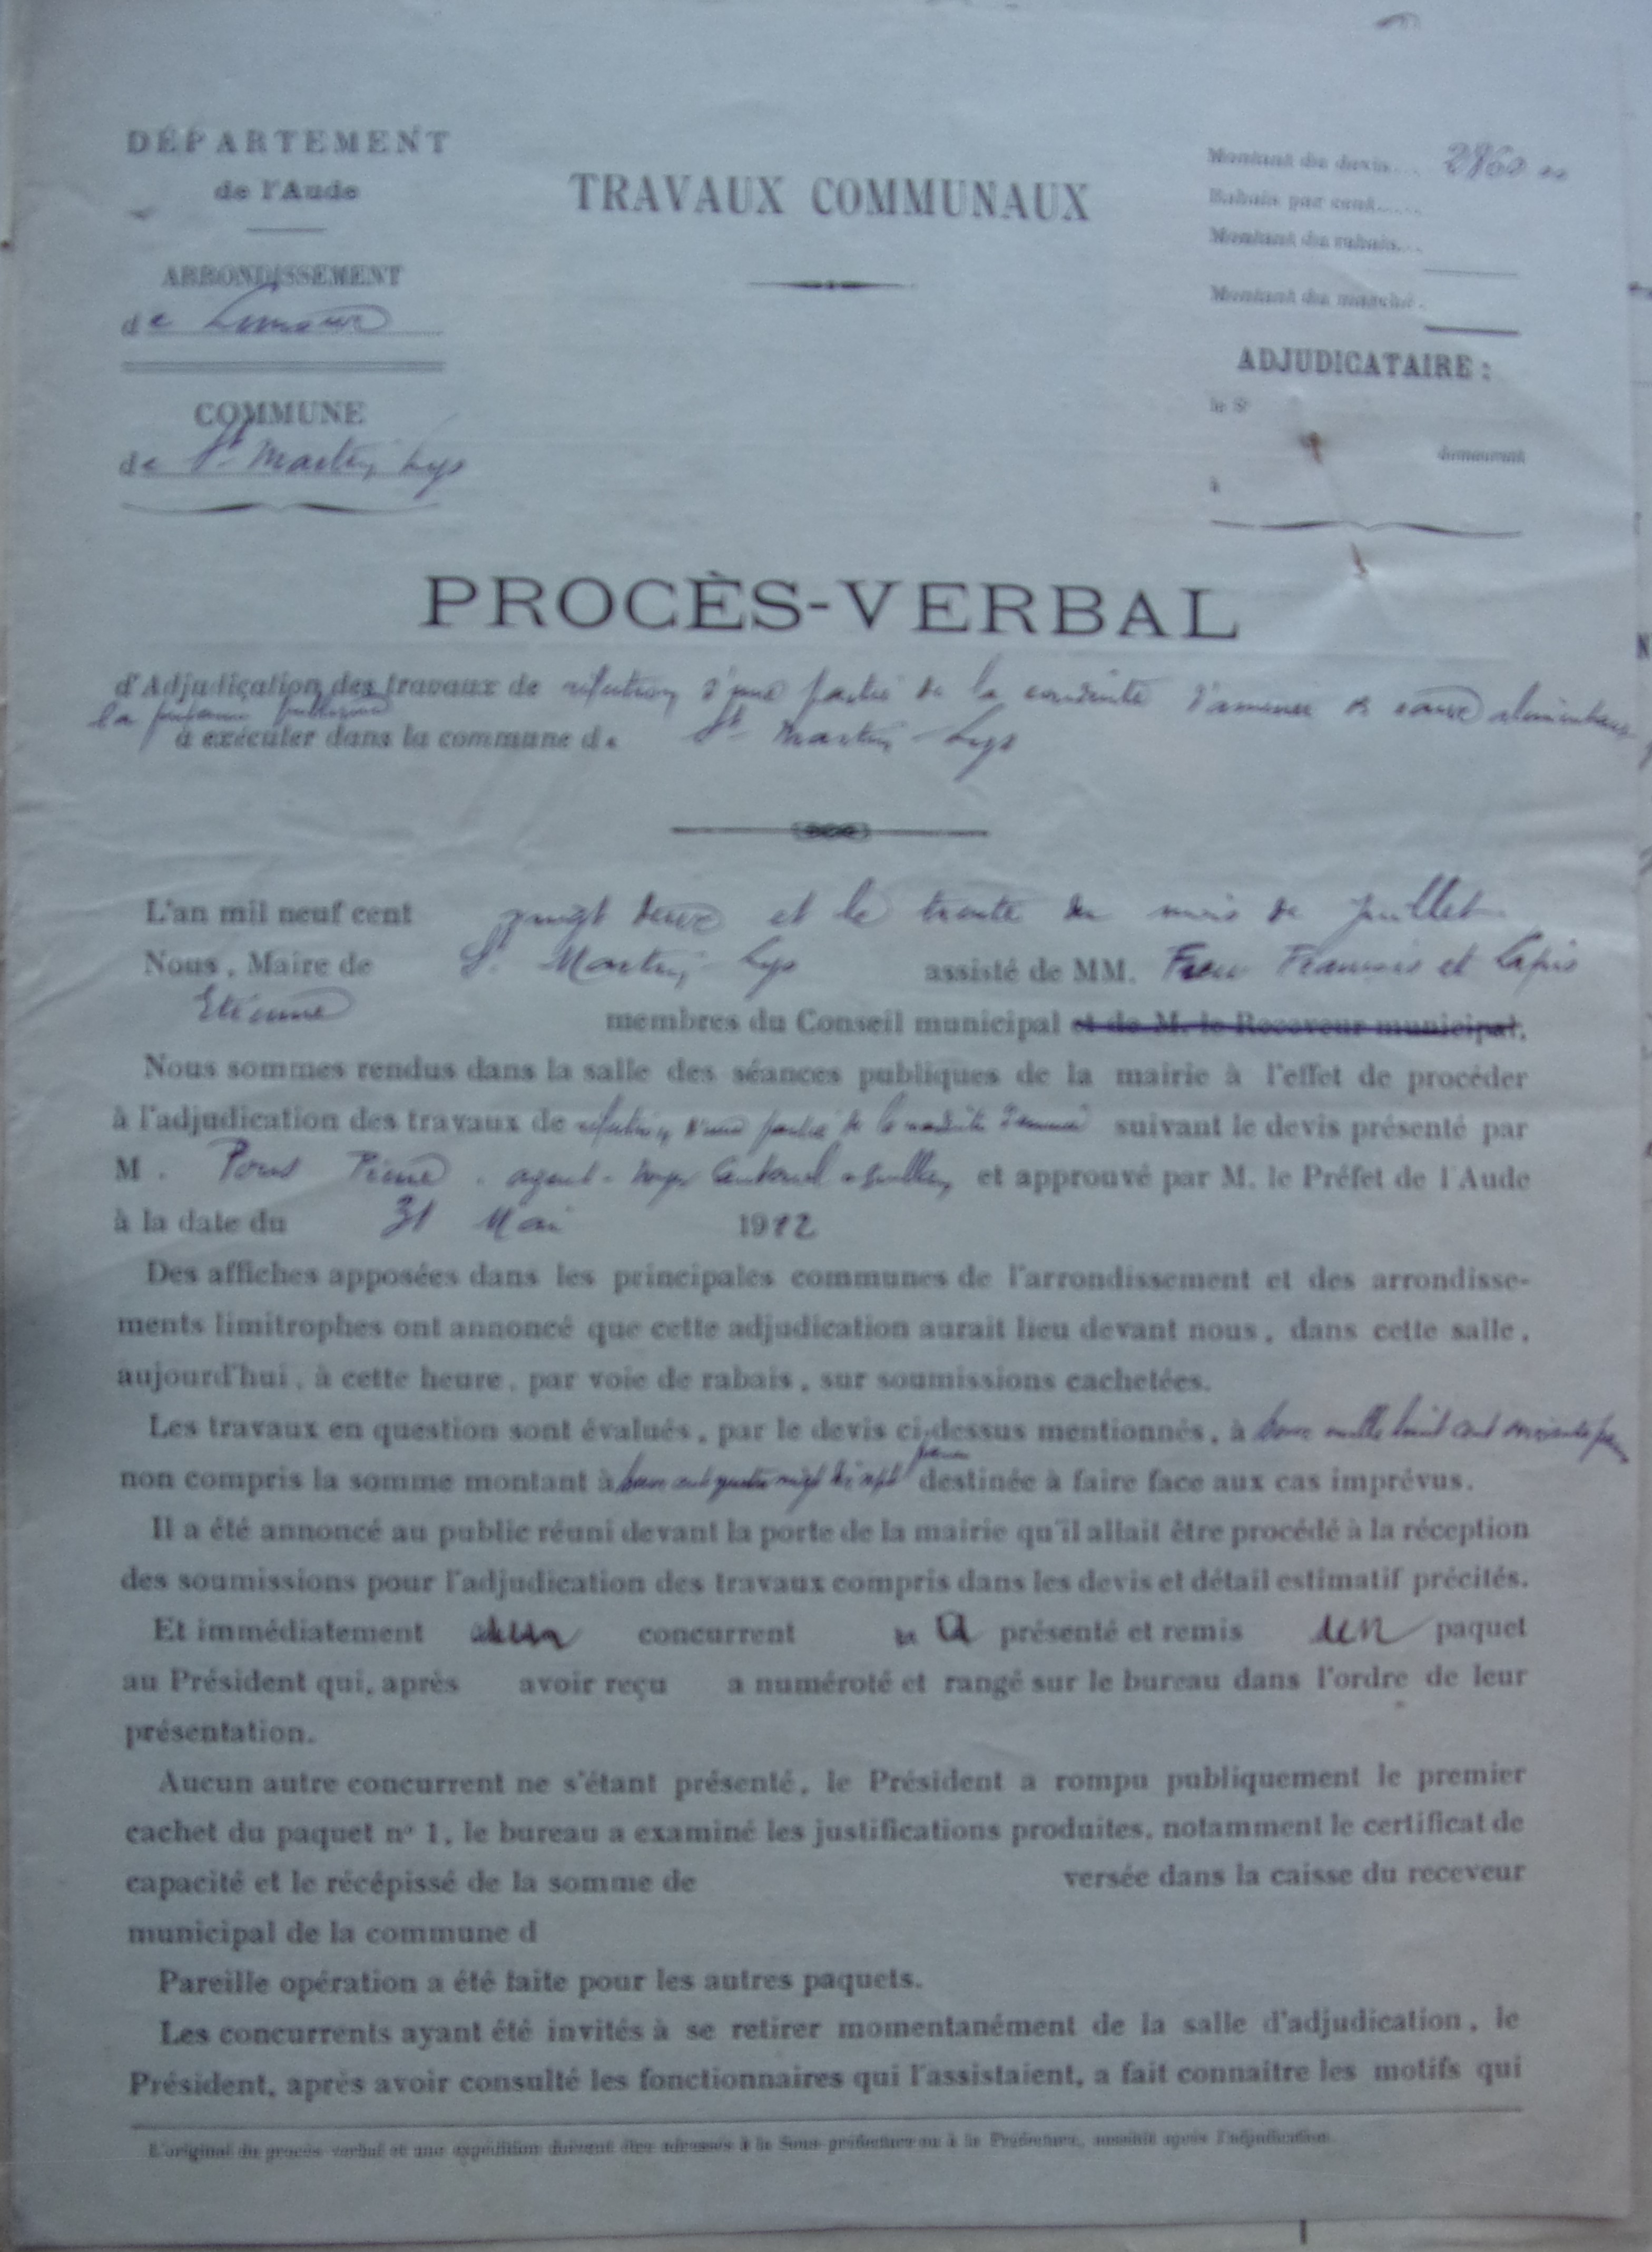 DÉPARTEMENT
de l'Aude
ARRONDISSEMENT
de Limoux
COMMUNE
de St Martin Lys
TRAVAUX COMMUNAUX
Montant du devis.... 2860
Rabais par cent......
Montant du rabais...
Montant du marché.
ADJUDICATAIRE :
le Sr
demeurant
à
PROCÈS-VERBAL
d'Adjudication des travaux de réfection d'une partie de la conduite d'amenée de eaux alimentaires
la fontaine publique
à exécuter dans la commune de St Martin-Lys
L'an mil neuf cent vingt deux et le trente du mois de juillet
Nous, Maire de St Martin Lys assisté de MM. Francois et Lapis
Etienne membres du Conseil municipal et de M. le Receveur municipal,
Nous sommes rendus dans la salle des séances publiques de la mairie à l'effet de procéder
à l'adjudication des travaux de réfection d'une partie de la conduite d'amenée suivant le devis présenté par
M. Pons Pierre agent-voyer Cantonal et approuvé par M. le Préfet de l'Aude
à la date du 31 Mai 1922
Des affiches apposées dans les principales communes de l'arrondissement et des arrondisse-
ments limitrophes ont annoncé que cette adjudication aurait lieu devant nous, dans cette salle,
aujourd'hui, à cette heure, par voie de rabais, sur soumissions cachetées.
Les travaux en question sont évalués, par le devis ci-dessus mentionnés, à deux mille huit cent soixante
non compris la somme montant à deux cent quatre vingt dix sept francs destinée à faire face aux cas imprévus.
Il a été annoncé au public réuni devant la porte de la mairie qu'il allait être procédé à la réception
des soumissions pour l'adjudication des travaux compris dans les devis et détail estimatif précités.
Et immédiatement un concurrent a présenté et remis un paquet
au Président qui, après avoir reçu a numéroté et rangé sur le bureau dans l'ordre de leur
présentation.
Aucun autre concurrent ne s'étant présenté, le Président a rompu publiquement le premier
cachet du paquet n° 1, le bureau a examiné les justifications produites, notamment le certificat de
capacité et le récépissé de la somme de versée dans la caisse du receveur
municipal de la commune d
Pareille opération a été faite pour les autres paquets.
Les concurrents ayant été invités à se retirer momentanément de la salle d'adjudication, le
Président, après avoir consulté les fonctionnaires qui l'assistaient, a fait connaitre les motifs qui
L'original du procès verbal et une expédition doivent être adressés à la Sous-préfecture ou à la Préfecture, aussitôt après l'adjudication.